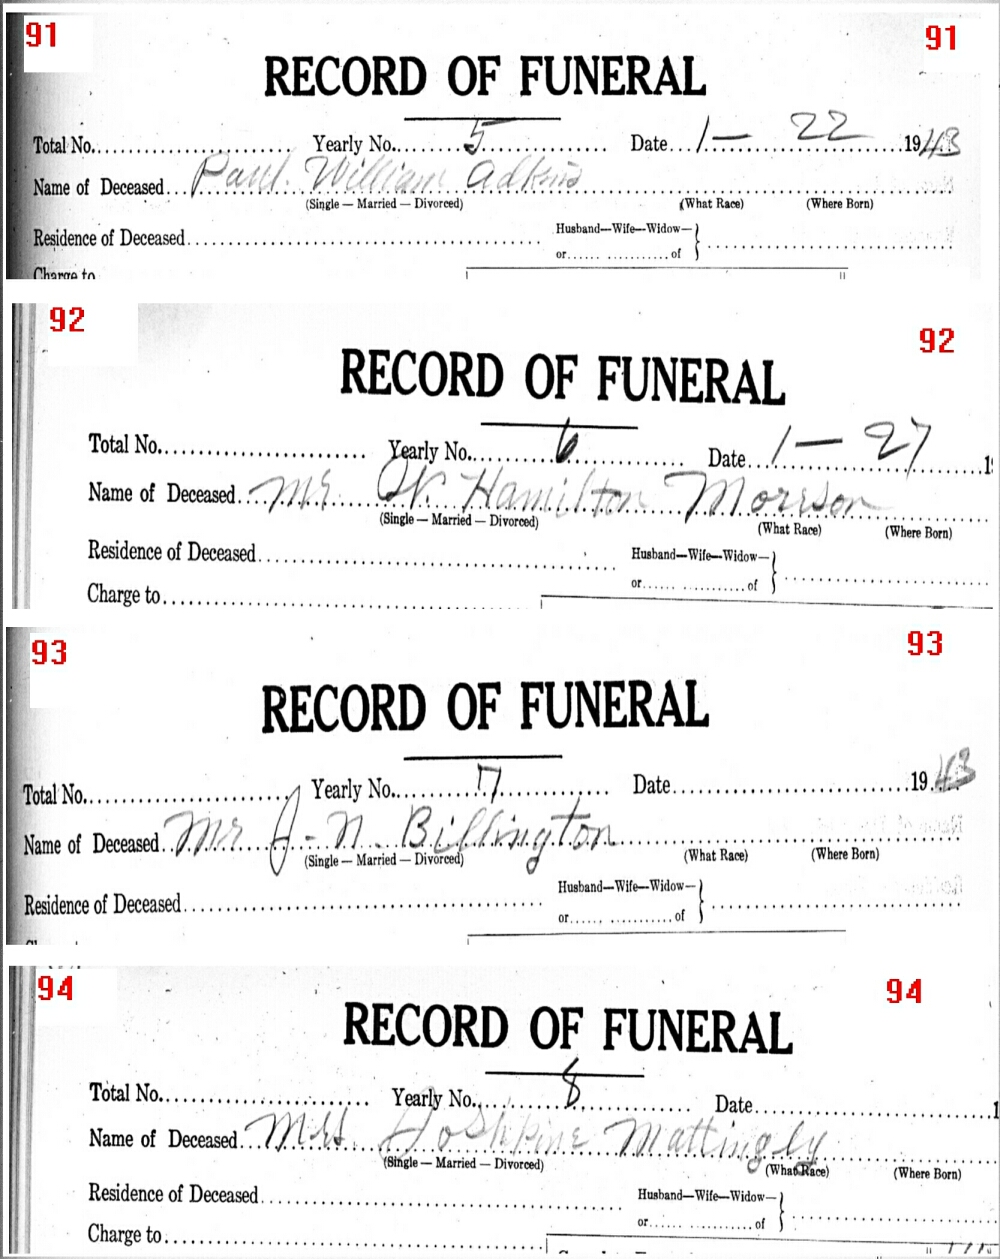 91 91
RECORD OF FUNERAL
Total No. Yearly No. 5 Date 1 — 22 1943
Name of Deceased Paul William Adkins
(Single — Married — Divorced) (What Race) (Where Born)
Residence of Deceased Husband—Wife—Widow—
or of
Charge to
92 92
RECORD OF FUNERAL
Total No. Yearly No. 6 Date 1 — 27 1
Name of Deceased Mr W. Hamilton Morrson
(Single — Married — Divorced) (What Race) (Where Born)
Residence of Deceased Husband—Wife—Widow—
or of
Charge to
93 93
RECORD OF FUNERAL
Total No. Yearly No. 7 Date 1943
Name of Deceased Mr J-N. Billington
(Single — Married — Divorced) (What Race) (Where Born)
Residence of Deceased Husband—Wife—Widow—
or of
94 94
RECORD OF FUNERAL
Total No. Yearly No. 8 Date 1
Name of Deceased Mrs Joshpine Mattingly
(Single — Married — Divorced) (What Race) (Where Born)
Residence of Deceased Husband—Wife—Widow—
or of
Charge to